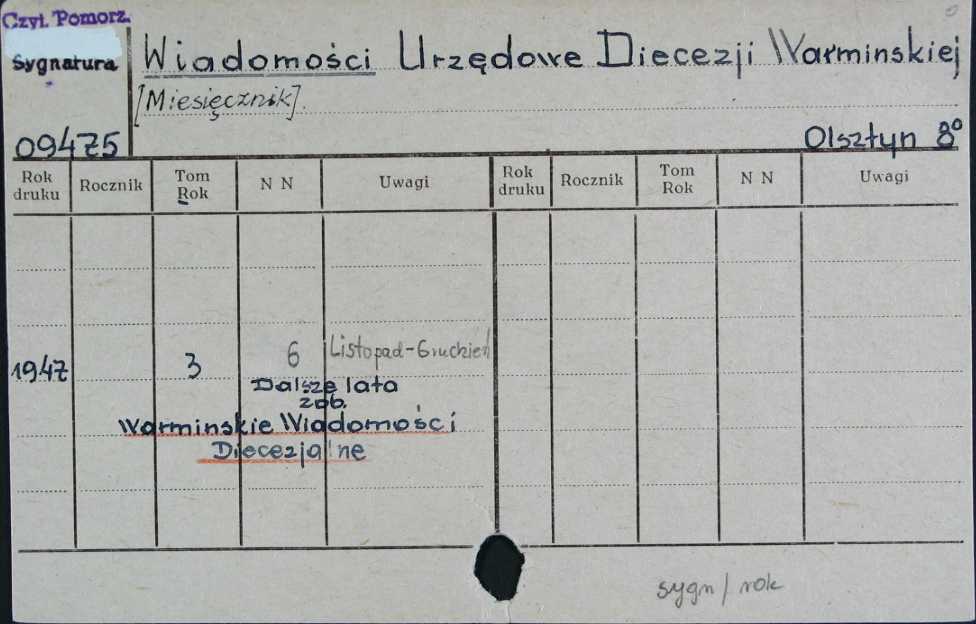 Czyt. Pomorz.
Sygnatura
Wiadomości Urzędowe Diecezji Warminskiej
[Miesięcznik].
09475
Olsztyn 8°
Rok druku Rocznik Tom Rok N N Uwagi Rok druku Rocznik Tom Rok N N Uwagi
1947 3 6 Listopad-Gruzień
Dalsze lata
zob.
Warminskie Wiadomości
Diecezjalne
sygn/rok